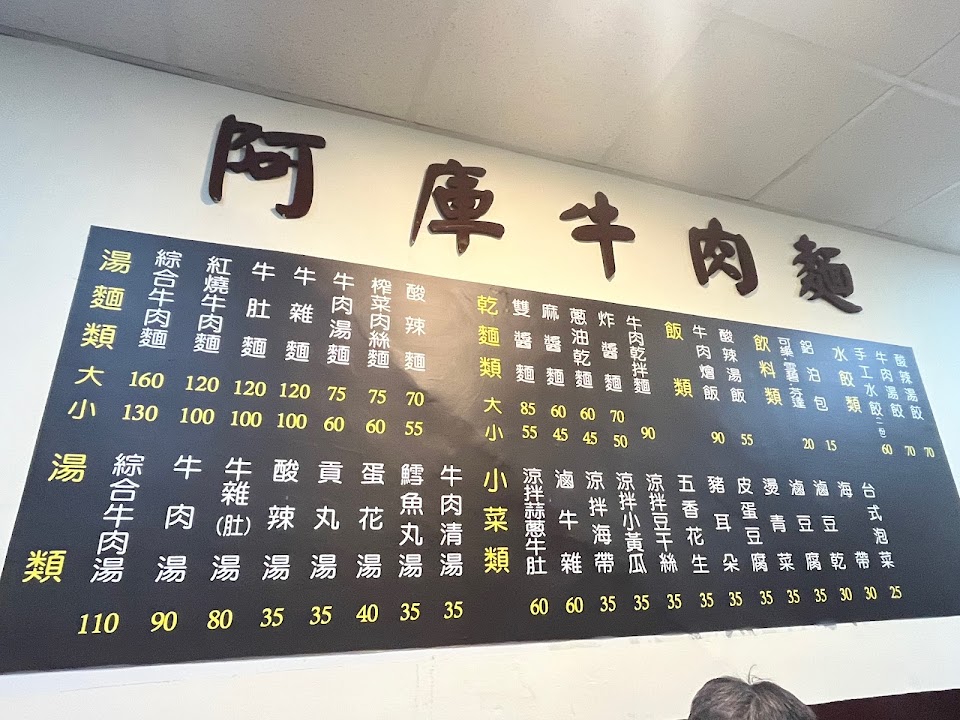 阿庫牛肉麵
湯麵類 大 小
綜合牛肉麵 160 130
紅燒牛肉麵 120 100
牛肚麵 120 100
牛雜麵 120 100
牛肉湯麵 75 60
榨菜肉絲麵 75 60
酸辣麵 70 55
乾麵類 大 小
雙醬麵 85 55
麻醬麵 60 45
蔥油乾麵 60 45
炸醬麵 70 50
牛肉乾拌麵 90
飯類
牛肉燴飯 90
酸辣湯飯 55
飲料類
可樂.雪碧.芬達 20
鋁泊包 15
水餃類
手工水餃 60
牛肉湯餃 70
酸辣湯餃 70
湯類
綜合牛肉湯 110
牛肉湯 90
牛雜(肚)湯 80
酸辣湯 35
貢丸湯 35
蛋花湯 40
鱈魚丸湯 35
牛肉清湯 35
小菜類
涼拌蒜蔥牛肚 60
滷牛雜 60
涼拌海帶 35
涼拌小黃瓜 35
涼拌豆干絲 35
五香花生 35
豬耳朵 35
皮蛋豆腐 35
燙青菜 35
滷豆腐 35
滷豆乾 30
海帶 30
台式泡菜 25